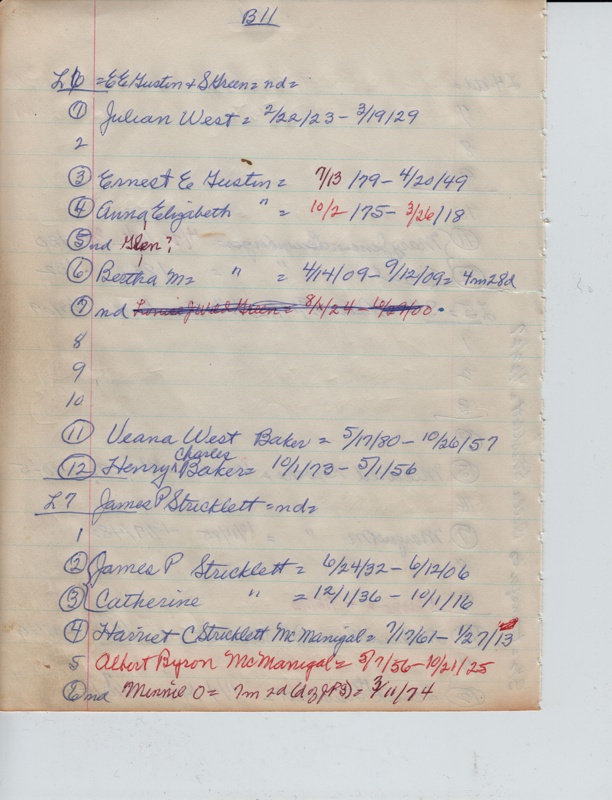 B11
L6 = E E Gustin + S Green = nd =
1 Julian West = 2/22/23 - 3/19/29
2
3 Ernest E Gustin = 7/13/79 - 4/20/49
4 Anna Elizabeth " = 10/2/75 - 3/26/18
5 nd Glen?
6 Bertha M = " = 4/14/09 - 9/12/09 = 4m28d
7 nd
8
9
10
11 Veana West Baker = 5/17/80 - 10/26/57
12 Henry Charles Baker = 10/1/73 - 5/1/56
L7 James P Stricklett = nd =
1
2 James P Stricklett = 6/24/32 - 6/12/06
3 Catherine " = 12/1/36 - 10/1/16
4 Harriet C Stricklett McManigal = 7/17/61 - 1/27/13
5 Albert Byron McManigal = 5/7/56 - 10/21/25
6 nd Minnie O = 7m 2d (d of JPS) = 3/11/74